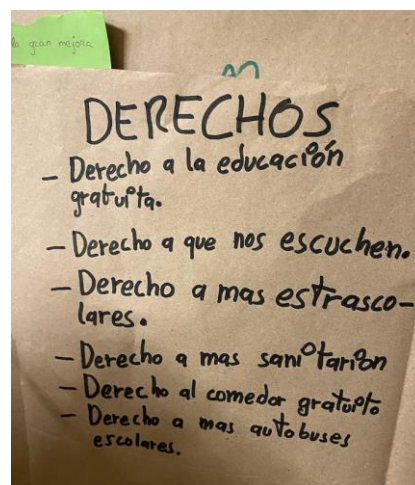 la gran mejora
DERECHOS
- Derecho a la educación
gratuita.
- Derecho a que nos escuchen.
- Derecho a mas estrasco-
lares.
- Derecho a mas sanitarion
- Derecho al comedor gratuito
- Derecho a mas autobuses
escolares.